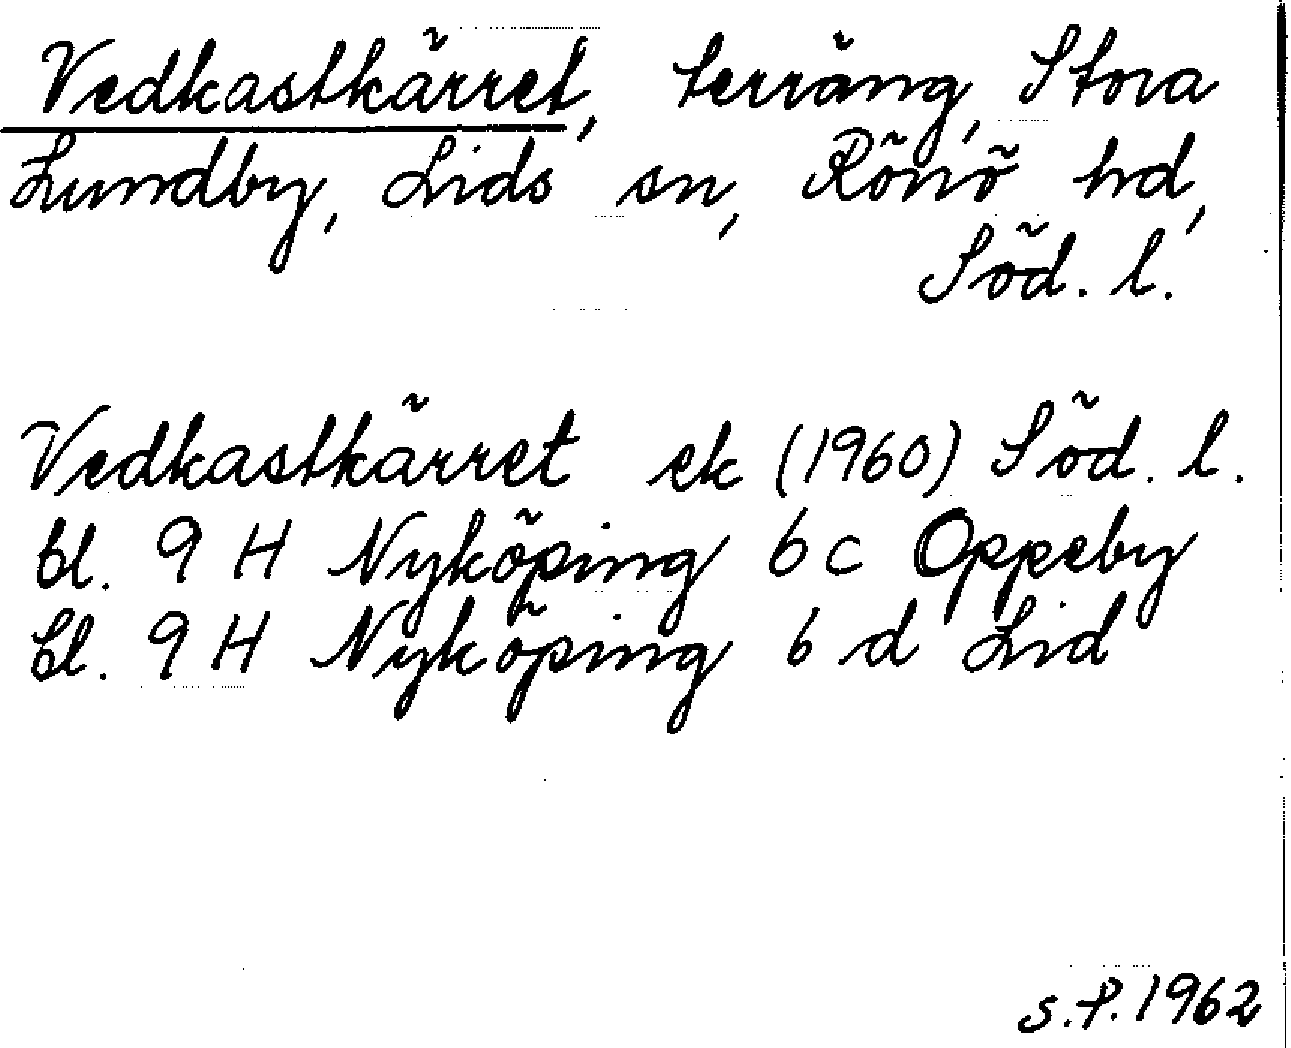 Vedkastkärret, terräng, Stora
Lundby, Lids sn, Rönö hd,
Söd. l.
Vedkastkärret ek (1960) Söd. l.
bl. 9 H Nyköping 6 c Oppeby
bl. 9 H Nyköping 6 d Lid
S.P. 1962